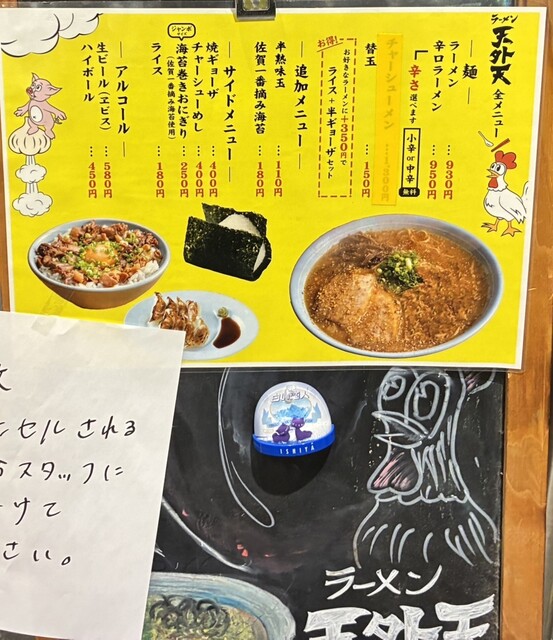 ラーメン
天外天 全メニュー
― 麺 ―
ラーメン …930円
辛口ラーメン …950円
辛さ選べます 小辛or中辛 無料
チャーシューメン …1,300円
替玉 …150円
お得!
お好きなラーメンに+350円で
ライス+半ギョーザセット
― 追加メニュー ―
半熟味玉 …110円
佐賀一番摘み海苔 …180円
― サイドメニュー ―
焼ギョーザ …400円
チャーシューめし …400円
ジャンボ
海苔巻きおにぎり …250円
(佐賀一番摘み海苔使用)
ライス …180円
― アルコール ―
生ビール(ヱビス) …580円
ハイボール …450円
セルされる
スタッフに
けて
さい。
白い恋人
ISHIYA
ラーメン
天外天